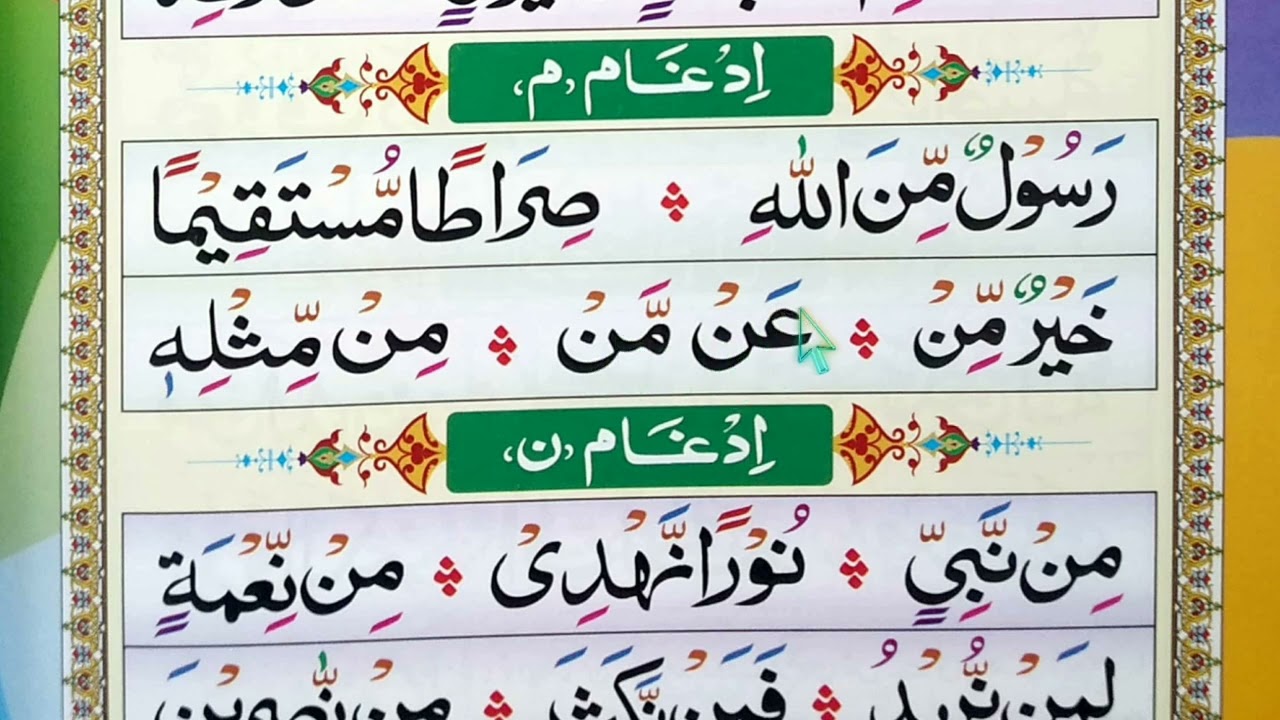 اِدْغَام ‹م›
رَسُوْلٌ مِّنَ اللّٰهِ ۞ صِرَاطًا مُّسْتَقِيْمًا
خَيْرٌ مِّنْ ۞ عَنْ مَّنْ ۞ مِنْ مِّثْلِهٖ
اِدْغَام ‹ن›
مِنْ نَّبِيٍّ ۞ نُوْرًا نَّهْدِىْ ۞ مِنْ نِّعْمَةٍ
لِمَنْ نُّرِيْدُ ۞ فَمَنْ نَّكَثَ ۞ مِنْ نّٰصِرِيْنَ